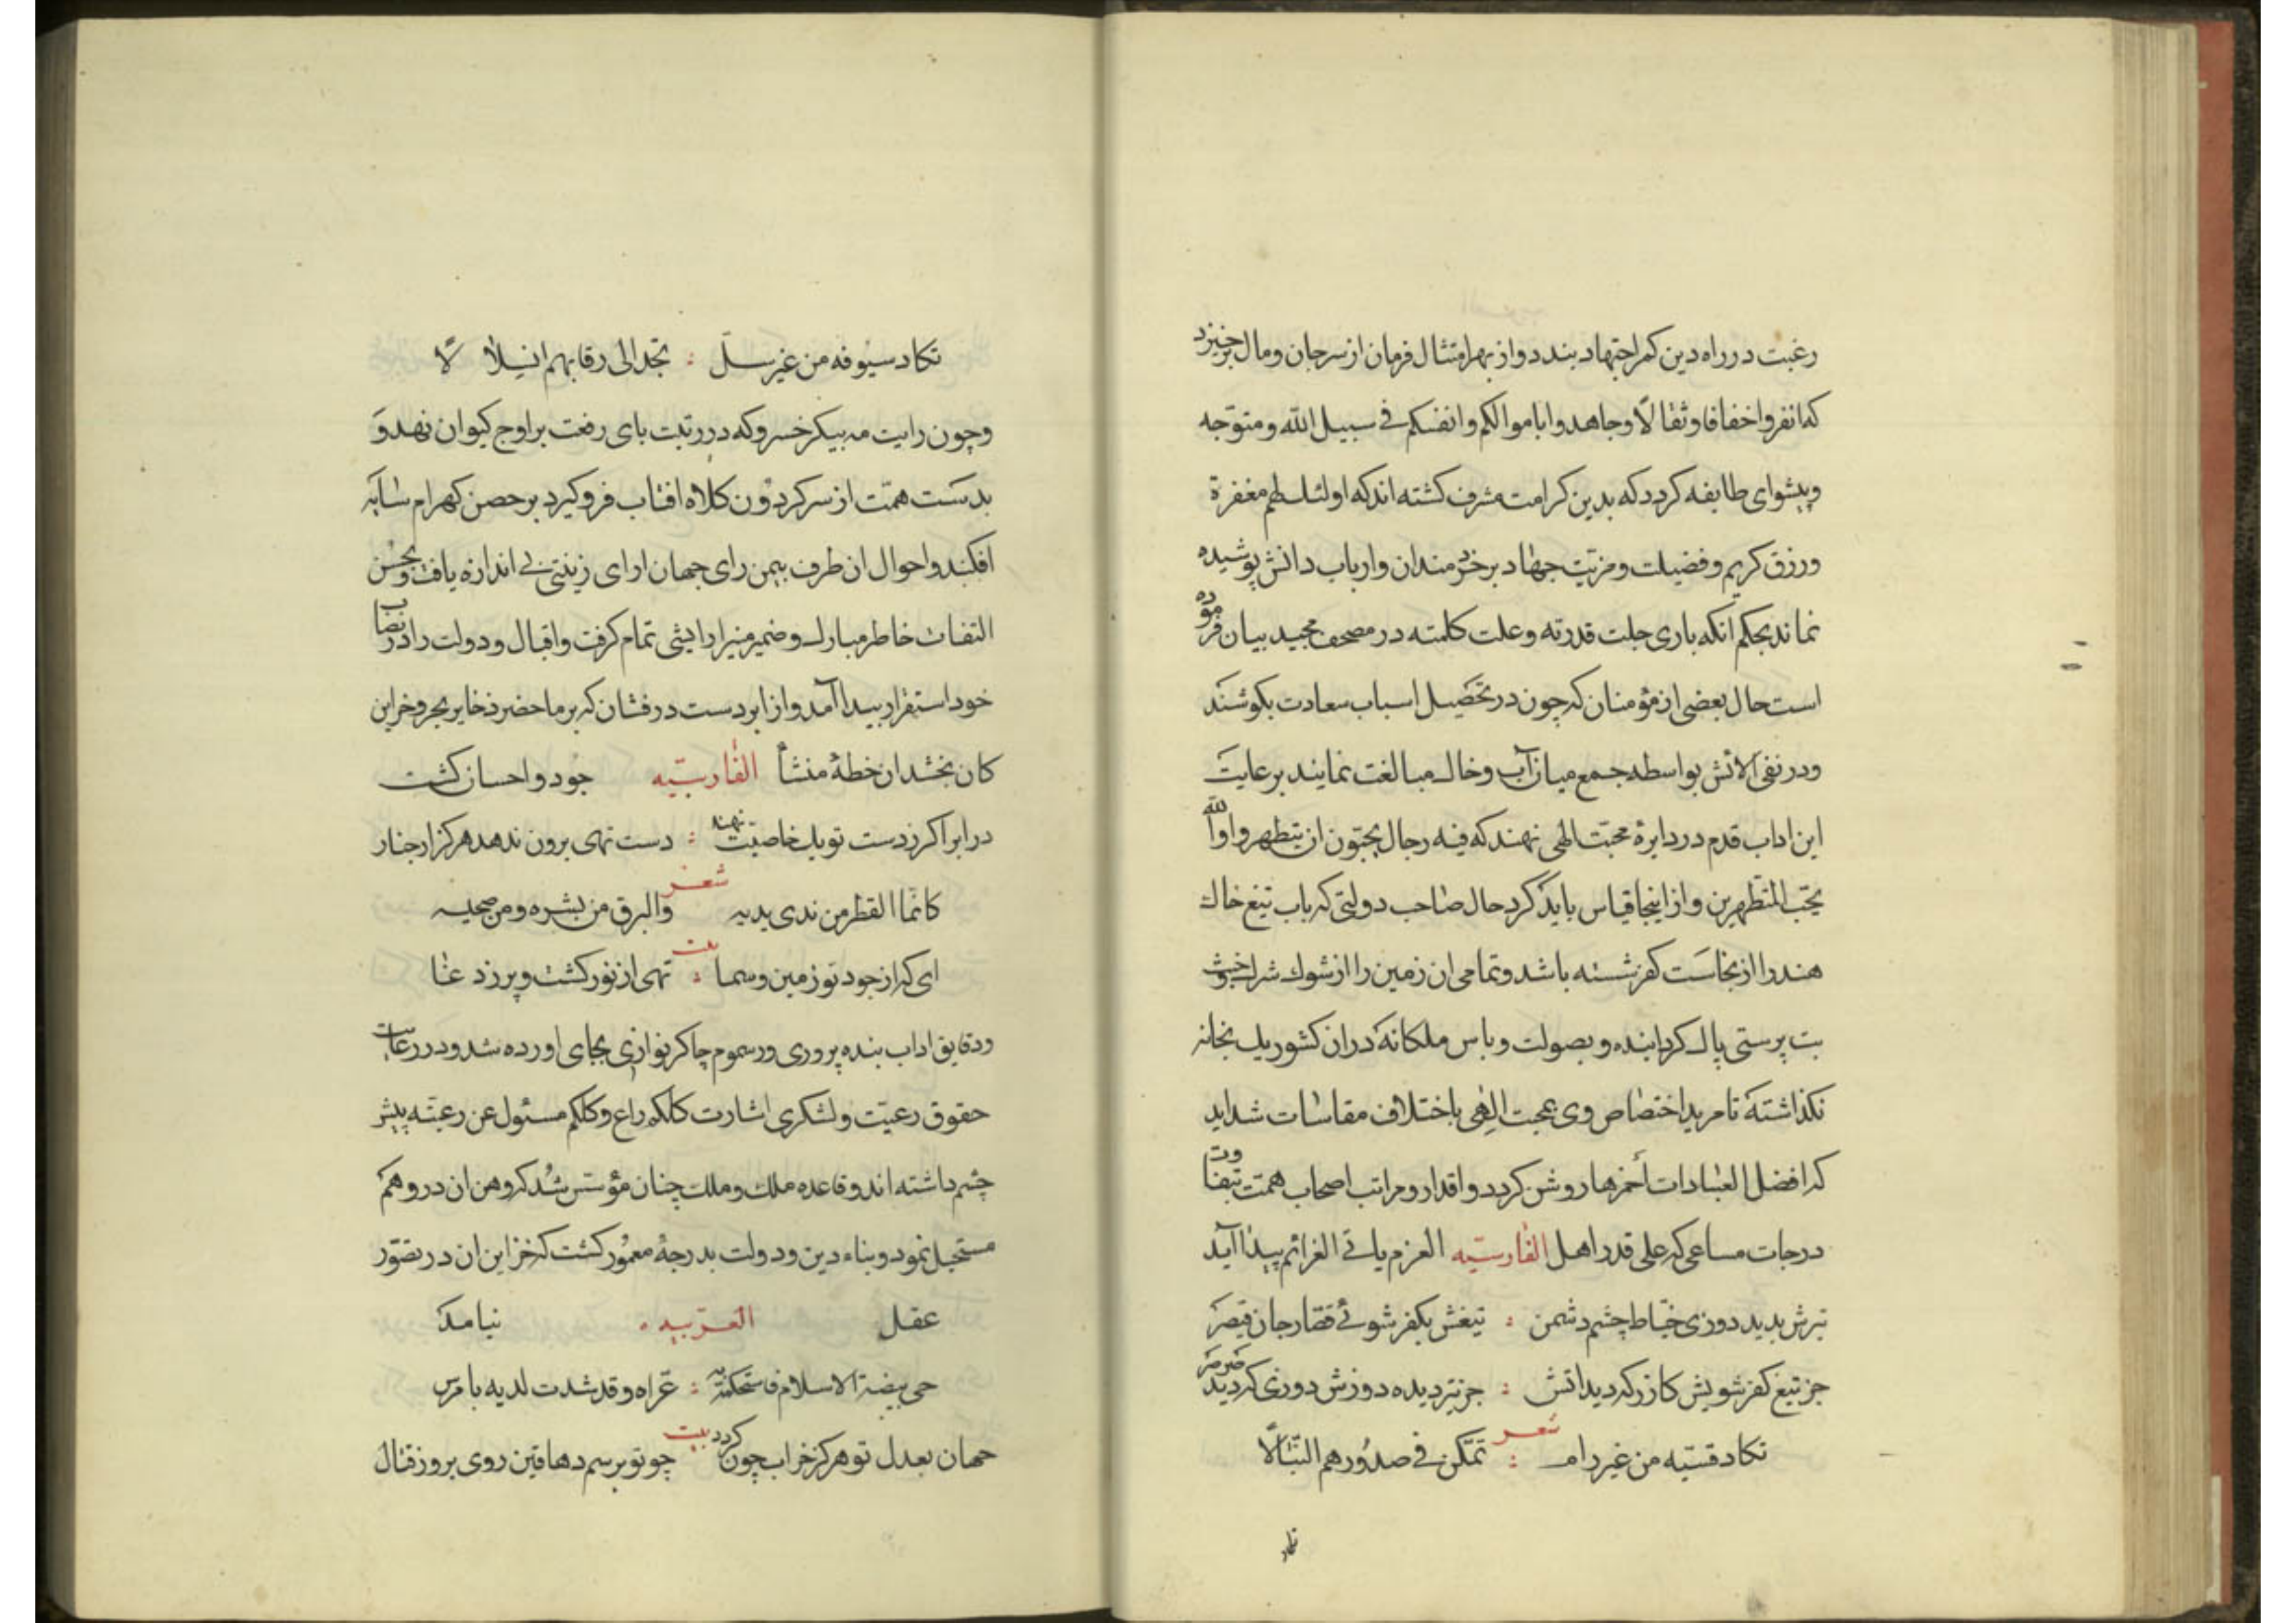 رغبت در راه دین کمر اجتهاد بندد و از بهر امتثال فرمان از سر جان و مال برخیزد
که انفروا خفافا وثقالا وجاهدوا باموالکم وانفسکم فی سبیل الله و متوجه
وپیشوای طایفه کردد که بدین کرامت مشرف کشته اند که اولئك لهم مغفرة
ورزق کریم و فضیلت و مزیت جهاد بر خردمندان و ارباب دانش پوشیده
نماند بحکم انکه باری جلت قدرته و علت کلمته در مصحف مجید بیان فرموده
است حال بعضی از مؤمنان که چون در تحصیل اسباب سعادت بکوشند
ودر نفی الایش بواسطه جمع میان آب و خاك مبالغت نمایند برعایت
این اداب قدم در دایرۀ محبت الهی نهند که فیه رجال یحبون ان یتطهروا والله
یحب المتطهرین و از اینجا قیاس باید کرد حال صاحب دولتی که باب تیغ خاك
هند را از نجاست کفر شسته باشد و تمامی ان زمین را از شوك شرك و خبث
بت پرستی پاك کردانیده و بصولت و باس ملکانه در ان کشور یك بتخانه
نکذاشته تا مزید اختصاص وی بمحبت الهی باختلاف مقاسات شداید
که افضل العبادات أحمزها روشن کردد و اقدار و مراتب اصحاب همت بتفاوت
درجات مساعی که علی قدر اهل الفارسیّه العزم یاتی الغرائم پیدا آید
تیرش بدیده دوزی خیاط چشم دشمن : تیغش بکفر شوئی قصار جان قیصر
جز تیغ کفر شویش کازر که دید اتش : جز تیر دیده دوزش دوزی که دید صرصر
شعر
تکاد قسیّه من غیر رام : تمکن فی صدورهم النّبالا
تکاد
تکاد سیوفه من غیر سلّ : تجد الی رقابهم انسلالا
وچون رایت مه پیکر خسرو که در رتبت پای رفعت بر اوج کیوان نهد و
بدست همّت از سر کردون کلاه افتاب فرو کیرد بر حصن کهرام سایه
افکند و احوال ان طرف بیمن رای جهان ارای زینتی بی اندازه یافت و بحسن
التفات خاطر مبارك و ضمیر منیر ارایشی تمام کرفت و اقبال و دولت را در نصاب
خود استقرار پیدا آمد و از ابر دست درفشان که بر ما حضر ذخایر بحر و خزاین
کان بخشد ان خطۀ منشأ الفارسیّه جود و احسان کشت
در ابر اکر ز دست تو یك خاصیّت نهند : دست تهی برون ندهد هرکز از چنار
شعر
کانما القطر من ندی یدیه والبرق من بشره ومن صحیه
بیت
ای که از جود تو زمین و سما : تهی از نور کشت و پر زد عا
ودقایق اداب بنده پروری و رسوم چاکر نوازی بجای اورده شد و در رعایت
حقوق رعیّت و لشکری اشارت کلکم راع وکلکم مسئول عن رعیّته پیش
چشم داشته اند و قاعده ملك و ملت چنان مؤسس شد که وهن ان در وهم
مستحیل نمود و بناء دین و دولت بدرجۀ معمور کشت که خزاین ان در تصوّر
عقل العربیه نیامد
حمی بیضة الاسلام فاستحکمت به : عراه وقد شدت لدیه بامرس
بیت
جهان بعدل تو هرکز خراب چون کردد چو تو برسم دهاقین روی بروز قتال